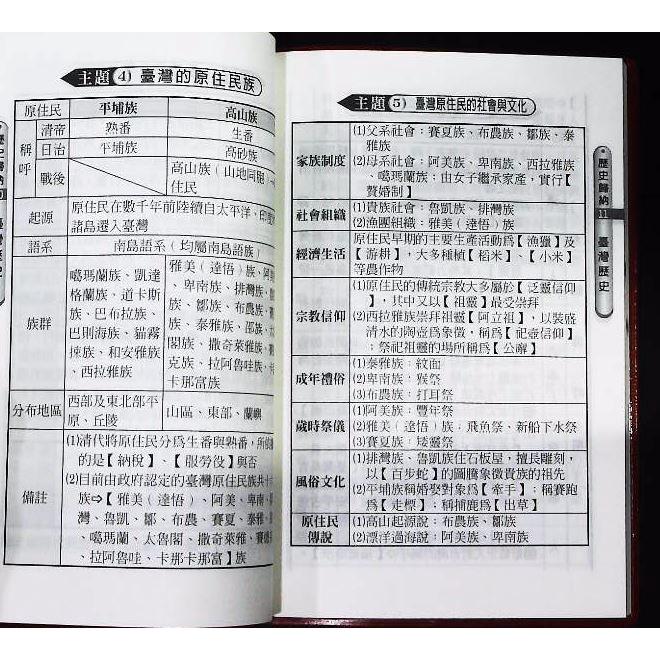 主題 4) 臺灣的原住民族
原住民 平埔族 高山族
稱呼
清帝 熟番 生番
日治 平埔族 高砂族
戰後 高山族（山地同胞）
住民
起源 原住民在數千年前陸續自太平洋、印度
諸島遷入臺灣
語系 南島語系（均屬南島語族）
族群
噶瑪蘭族、凱達
格蘭族、道卡斯
族、巴布拉族、
巴則海族、貓霧
捒族、和安雅族
、西拉雅族
雅美（達悟）族、阿
、卑南族、排灣族、
族、鄒族、布農族、
族、泰雅族、邵族、太
閣族、撒奇萊雅族、
克族、拉阿魯哇族、
卡那富族
分布地區 西部及東北部平
原、丘陵
山區、東部、蘭嶼
備註
(1)清代將原住民分為生番與熟番，所
的是【納稅】、【服勞役】與否
(2)目前由政府認定的臺灣原住民族共
族⇨【雅美（達悟）、阿美、卑南、
灣、魯凱、鄒、布農、賽夏、泰雅、
、噶瑪蘭、太魯閣、撒奇萊雅、賽德
、拉阿魯哇、卡那卡那富】族
主題 5) 臺灣原住民的社會與文化
家族制度
(1)父系社會：賽夏族、布農族、鄒族、泰
雅族
(2)母系社會：阿美族、卑南族、西拉雅族
、噶瑪蘭族；由女子繼承家產，實行【
贅婚制】
社會組織
(1)貴族社會：魯凱族、排灣族
(2)漁團組織：雅美（達悟）族
經濟生活
原住民早期的主要生產活動為【漁獵】及
【游耕】，大多種植【稻米】、【小米】
等農作物
宗教信仰
(1)原住民的傳統宗教大多屬於【泛靈信仰
】，其中又以【祖靈】最受崇拜
(2)西拉雅族崇拜祖靈【阿立祖】，以裝盛
清水的陶壺為象徵，稱為【祀壺信仰】
；祭祀祖靈的場所稱為【公廨】
成年禮俗
(1)泰雅族：紋面
(2)卑南族：猴祭
(3)布農族：打耳祭
歲時祭儀
(1)阿美族：豐年祭
(2)雅美（達悟）族：飛魚祭、新船下水祭
(3)賽夏族：矮靈祭
風俗文化
(1)排灣族、魯凱族住石板屋，擅長雕刻，
以【百步蛇】的圖騰象徵貴族的祖先
(2)平埔族稱婚娶對象為【牽手】；稱賽跑
為【走標】；稱捕鹿為【出草】
原住民
傳說
(1)高山起源說：布農族、鄒族
(2)漂洋過海說：阿美族、卑南族
歷史歸納 11 臺灣歷史